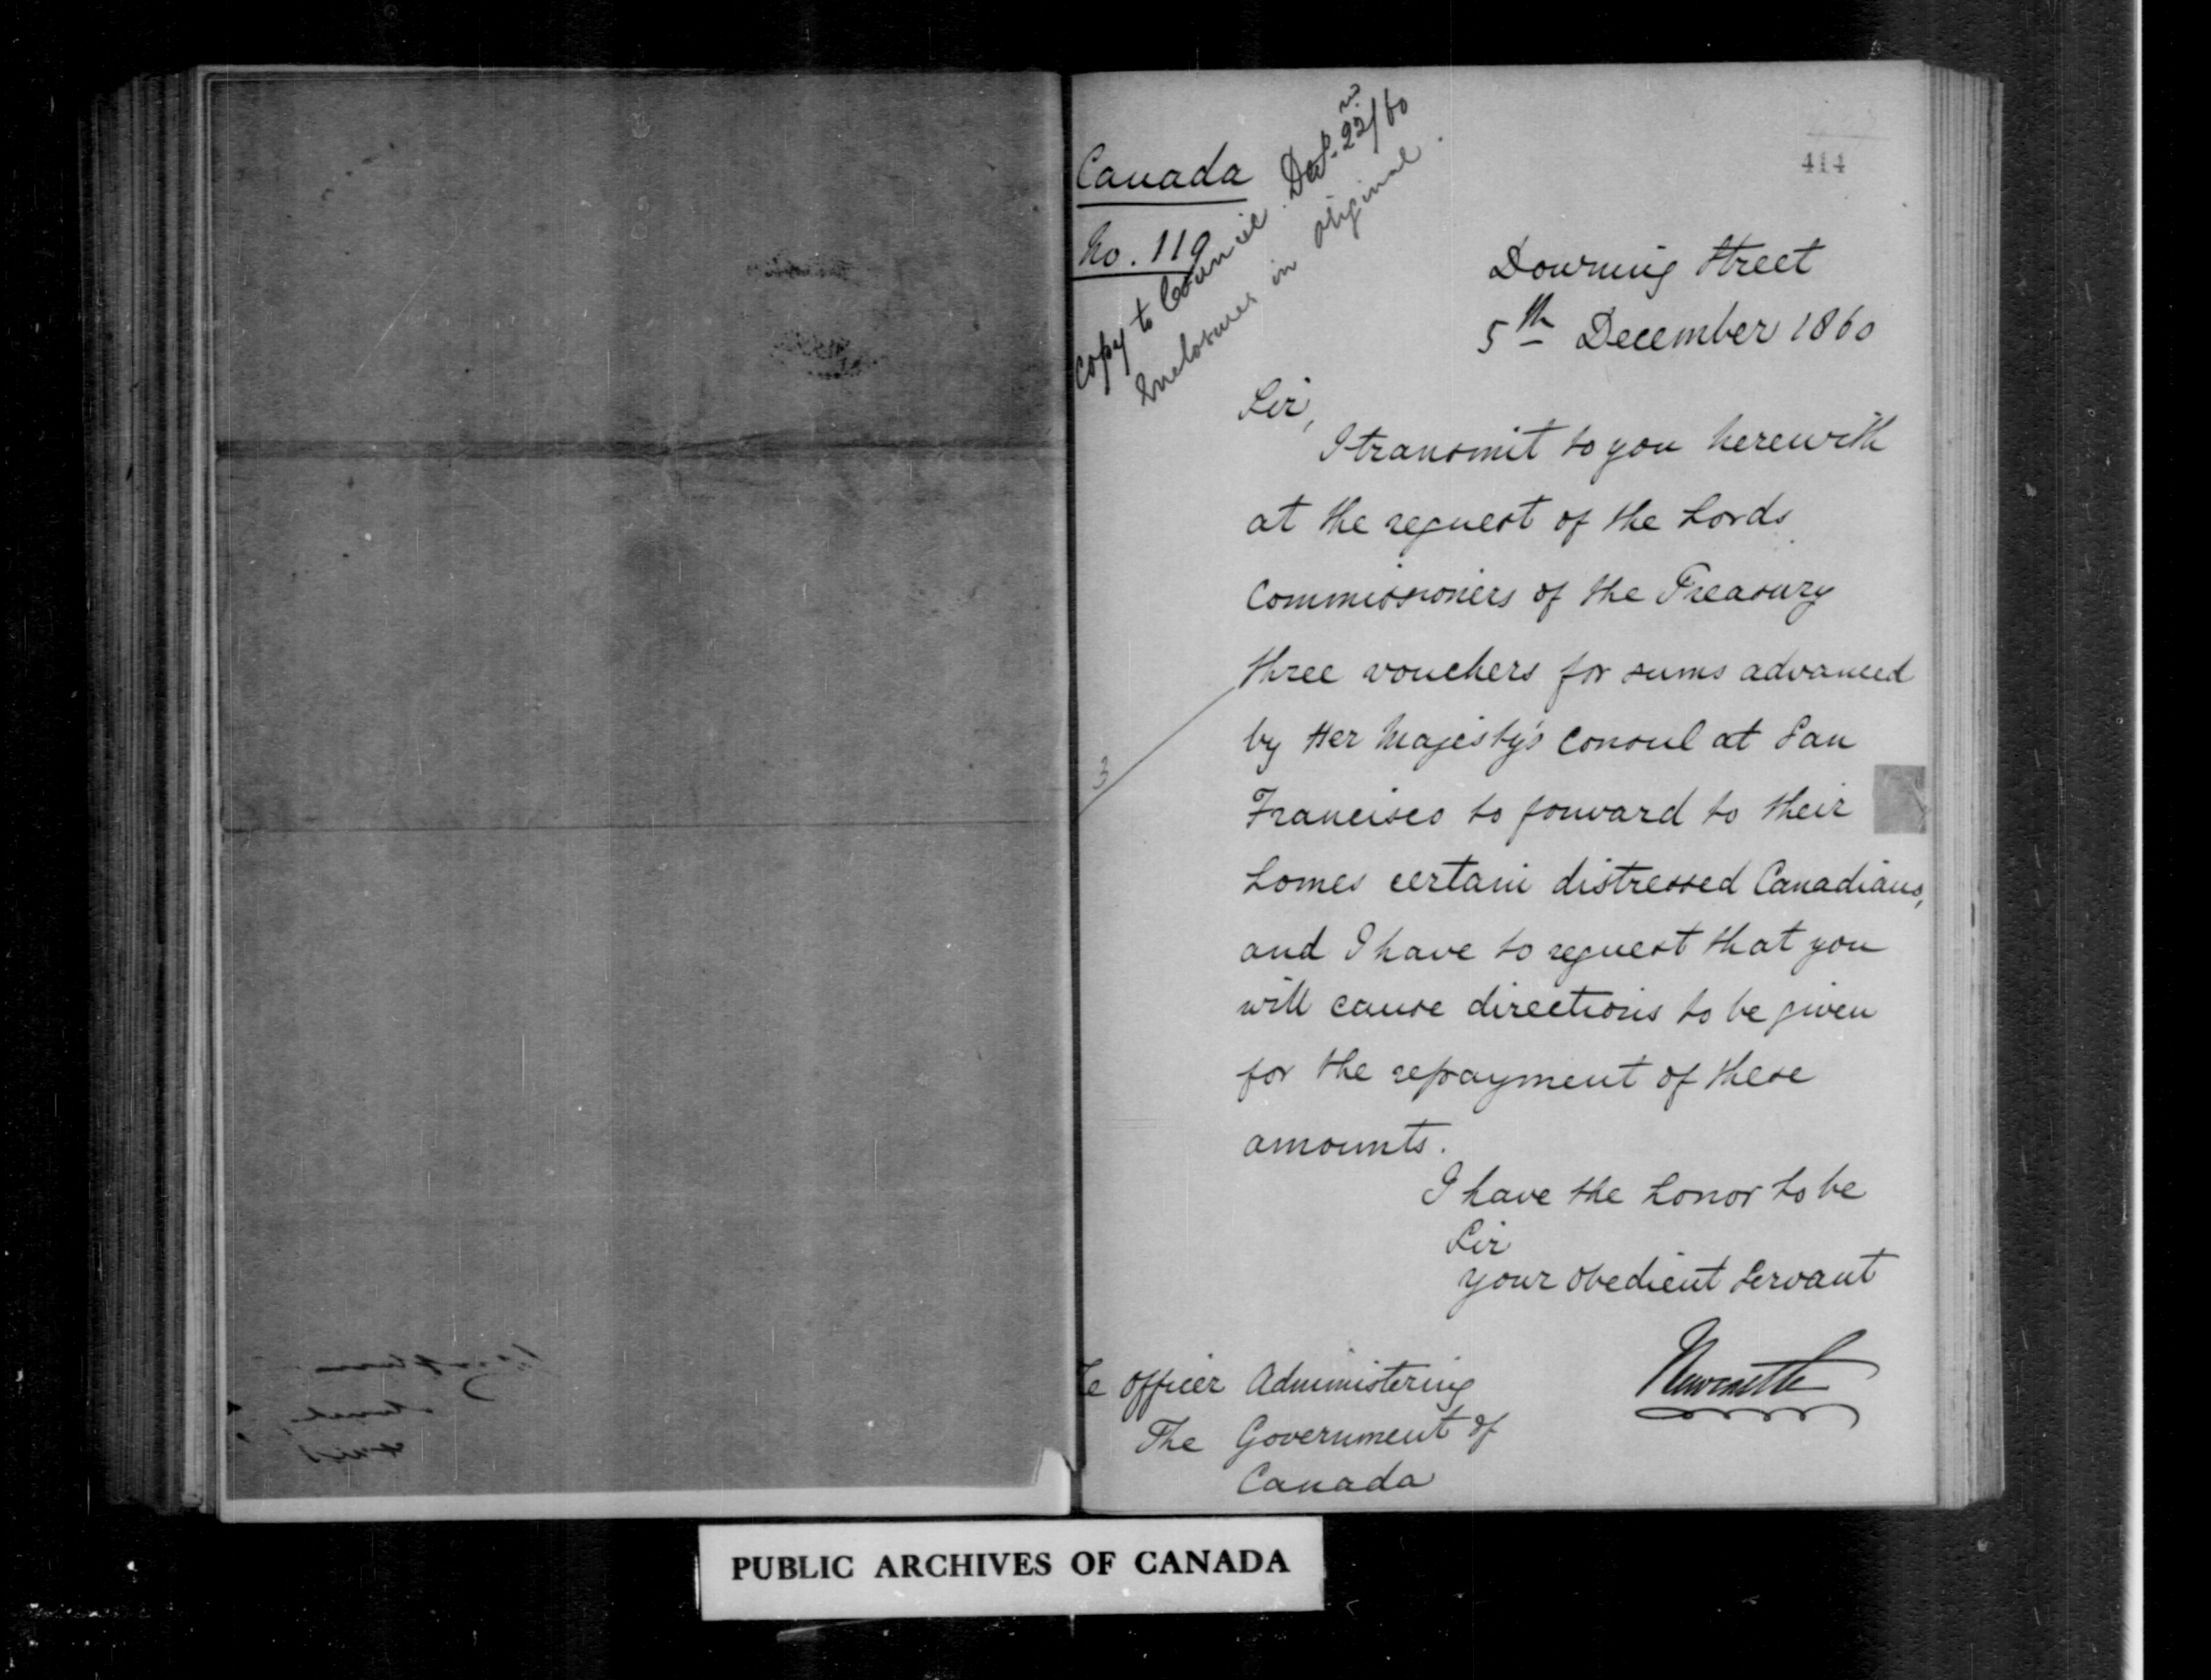 414
Canada
No. 119
Copy to Council. Decr. 22/60
Enclosures in original.
Downing Street
5th December 1860
Sir,
I transmit to you herewith
at the request of the Lords
Commissioners of the Treasury
three vouchers for sums advanced
by Her Majesty's Consul at San
Francisco to forward to their
homes certain distressed Canadians,
and I have to request that you
will cause directions to be given
for the repayment of these
amounts.
3
I have the honor to be
Sir
your obedient servant
Newcastle
The Officer Administering
The Government of
Canada
PUBLIC ARCHIVES OF CANADA